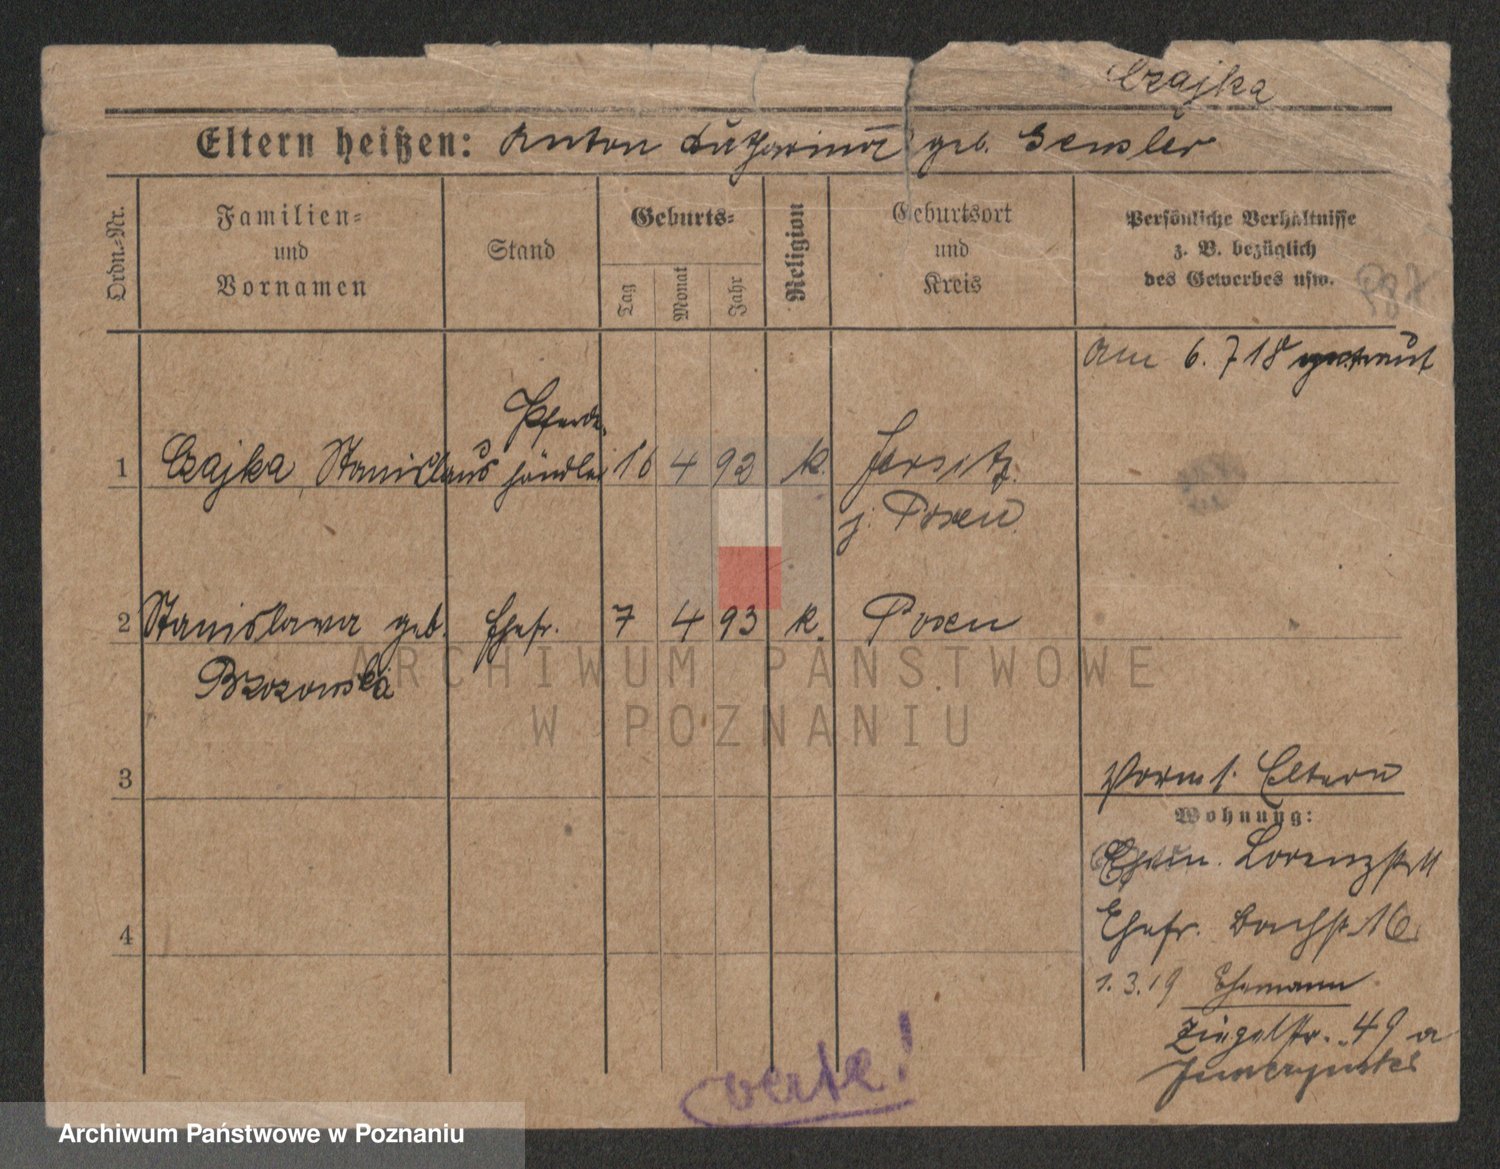 Czajka
Eltern heißen: Anton Katharina geb. Gensler
Ordn.-Nr.
Familien-
und
Vornamen
Stand
Geburts-
Tag
Monat
Jahr
Religion
Geburtsort
und
Kreis
Persönliche Verhältnisse
z. B. bezüglich
des Gewerbes usw.
am 6. 7 18 getraut
Pferde-
1 Czajka, Stanislaus händler 16 4 92 k. Jersitz
j. Posen
2 Stanislawa geb. Ehefr. 7 4 93 k. Posen
Brzozowska
3
Vorm s. Eltern
Wohnung:
Lorenzstr
4
Ehefr. Bachstr. 16
1. 3. 19 Ehemann
Ziegelstr. 49 a
verte!
ARCHIWUM PAŃSTWOWE
W POZNANIU
Archiwum Państwowe w Poznaniu